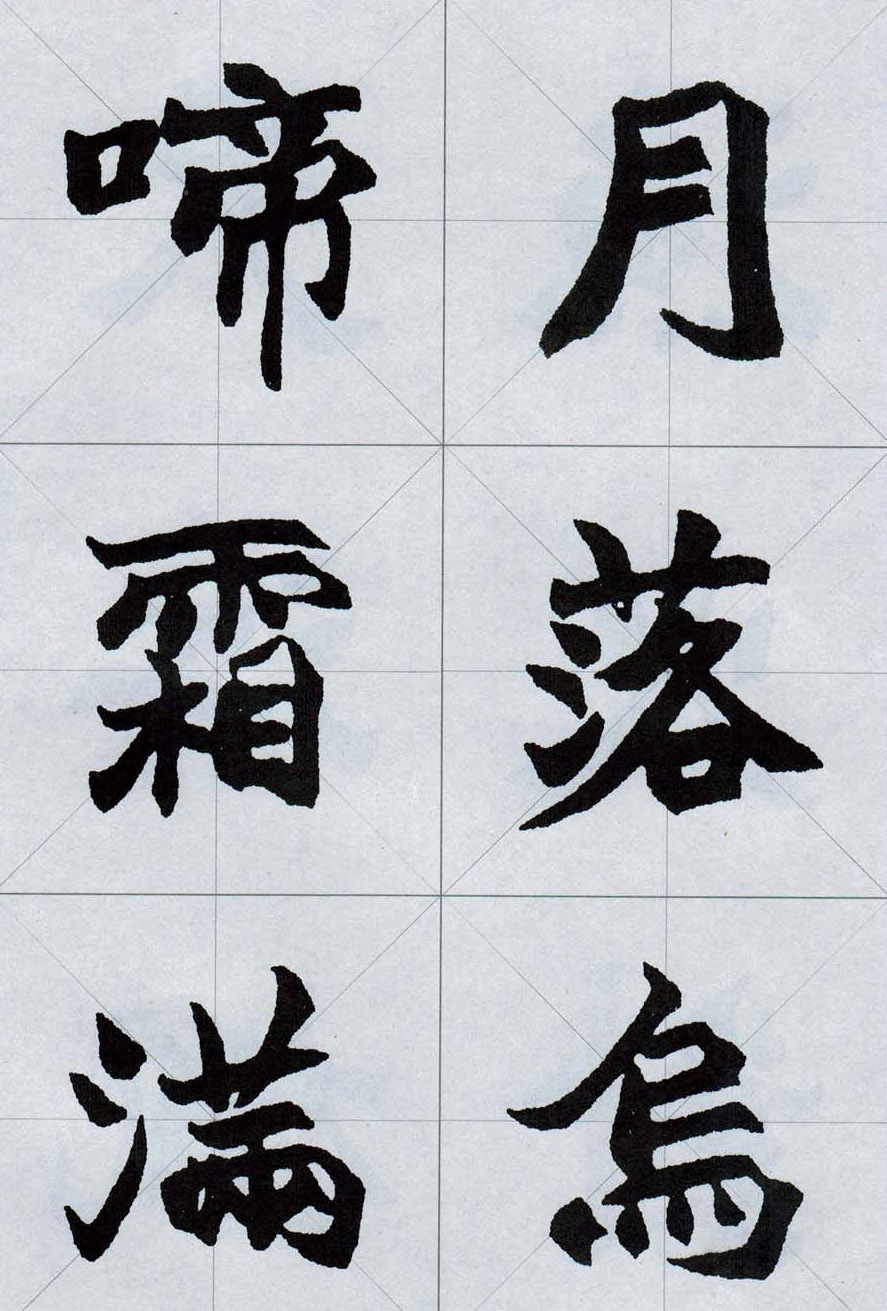 月落烏
啼霜滿